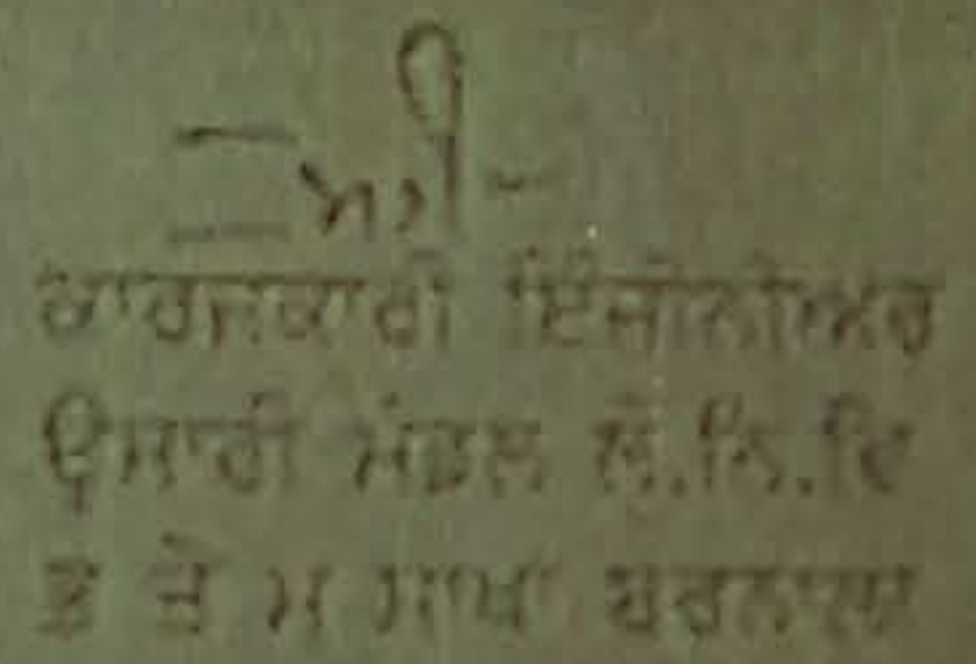 ਸਹੀ
ਕਾਰਜਕਾਰੀ ਇੰਜੀਨੀਅਰ
ਉਸਾਰੀ ਮੰਡਲ ਲੋ.ਨਿ.ਵਿ
ਭ ਤੇ ਮ ਸ਼ਾਖਾ ਬਰਨਾਲਾ